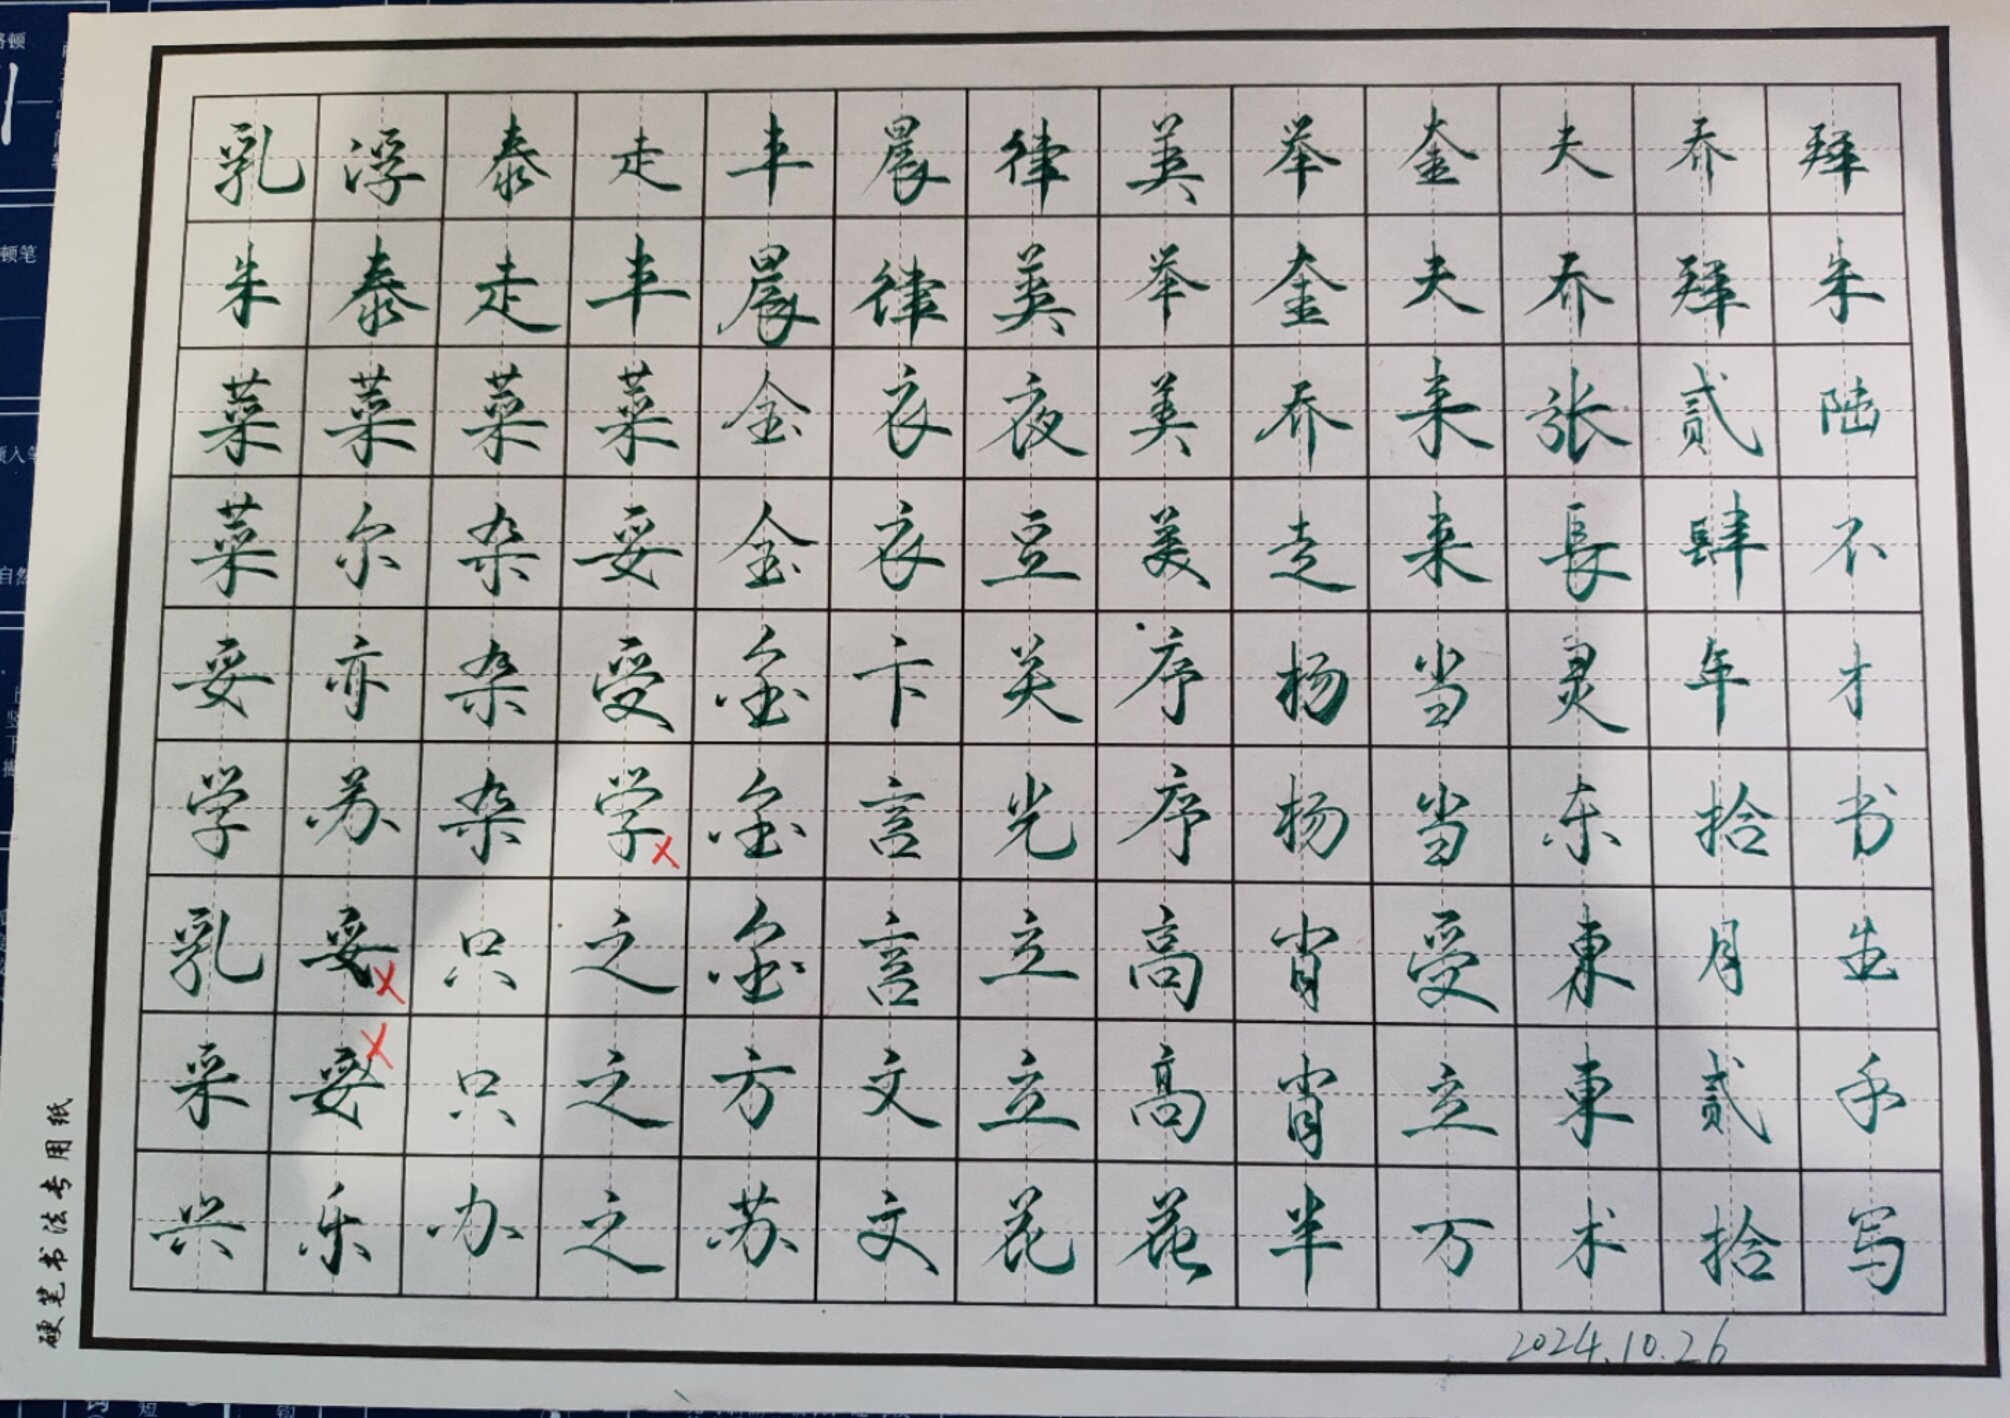 乳浮泰走丰晨律美举奎夫乔拜
朱泰走丰晨律美举奎夫乔拜朱
菜菜菜菜金衣夜美乔来张贰陆
菜尔杂妥金衣豆美走来長肆不
妥亦杂受金卞关序杨当灵年才
学苏杂学金言光序杨当东拾书
乳妥只之金言立高肖受東月生
采妥只之方文立高肖立東贰手
兴乐办之苏文花花半万术拾写
2024.10.26
硬笔书法专用纸
顿笔
自然